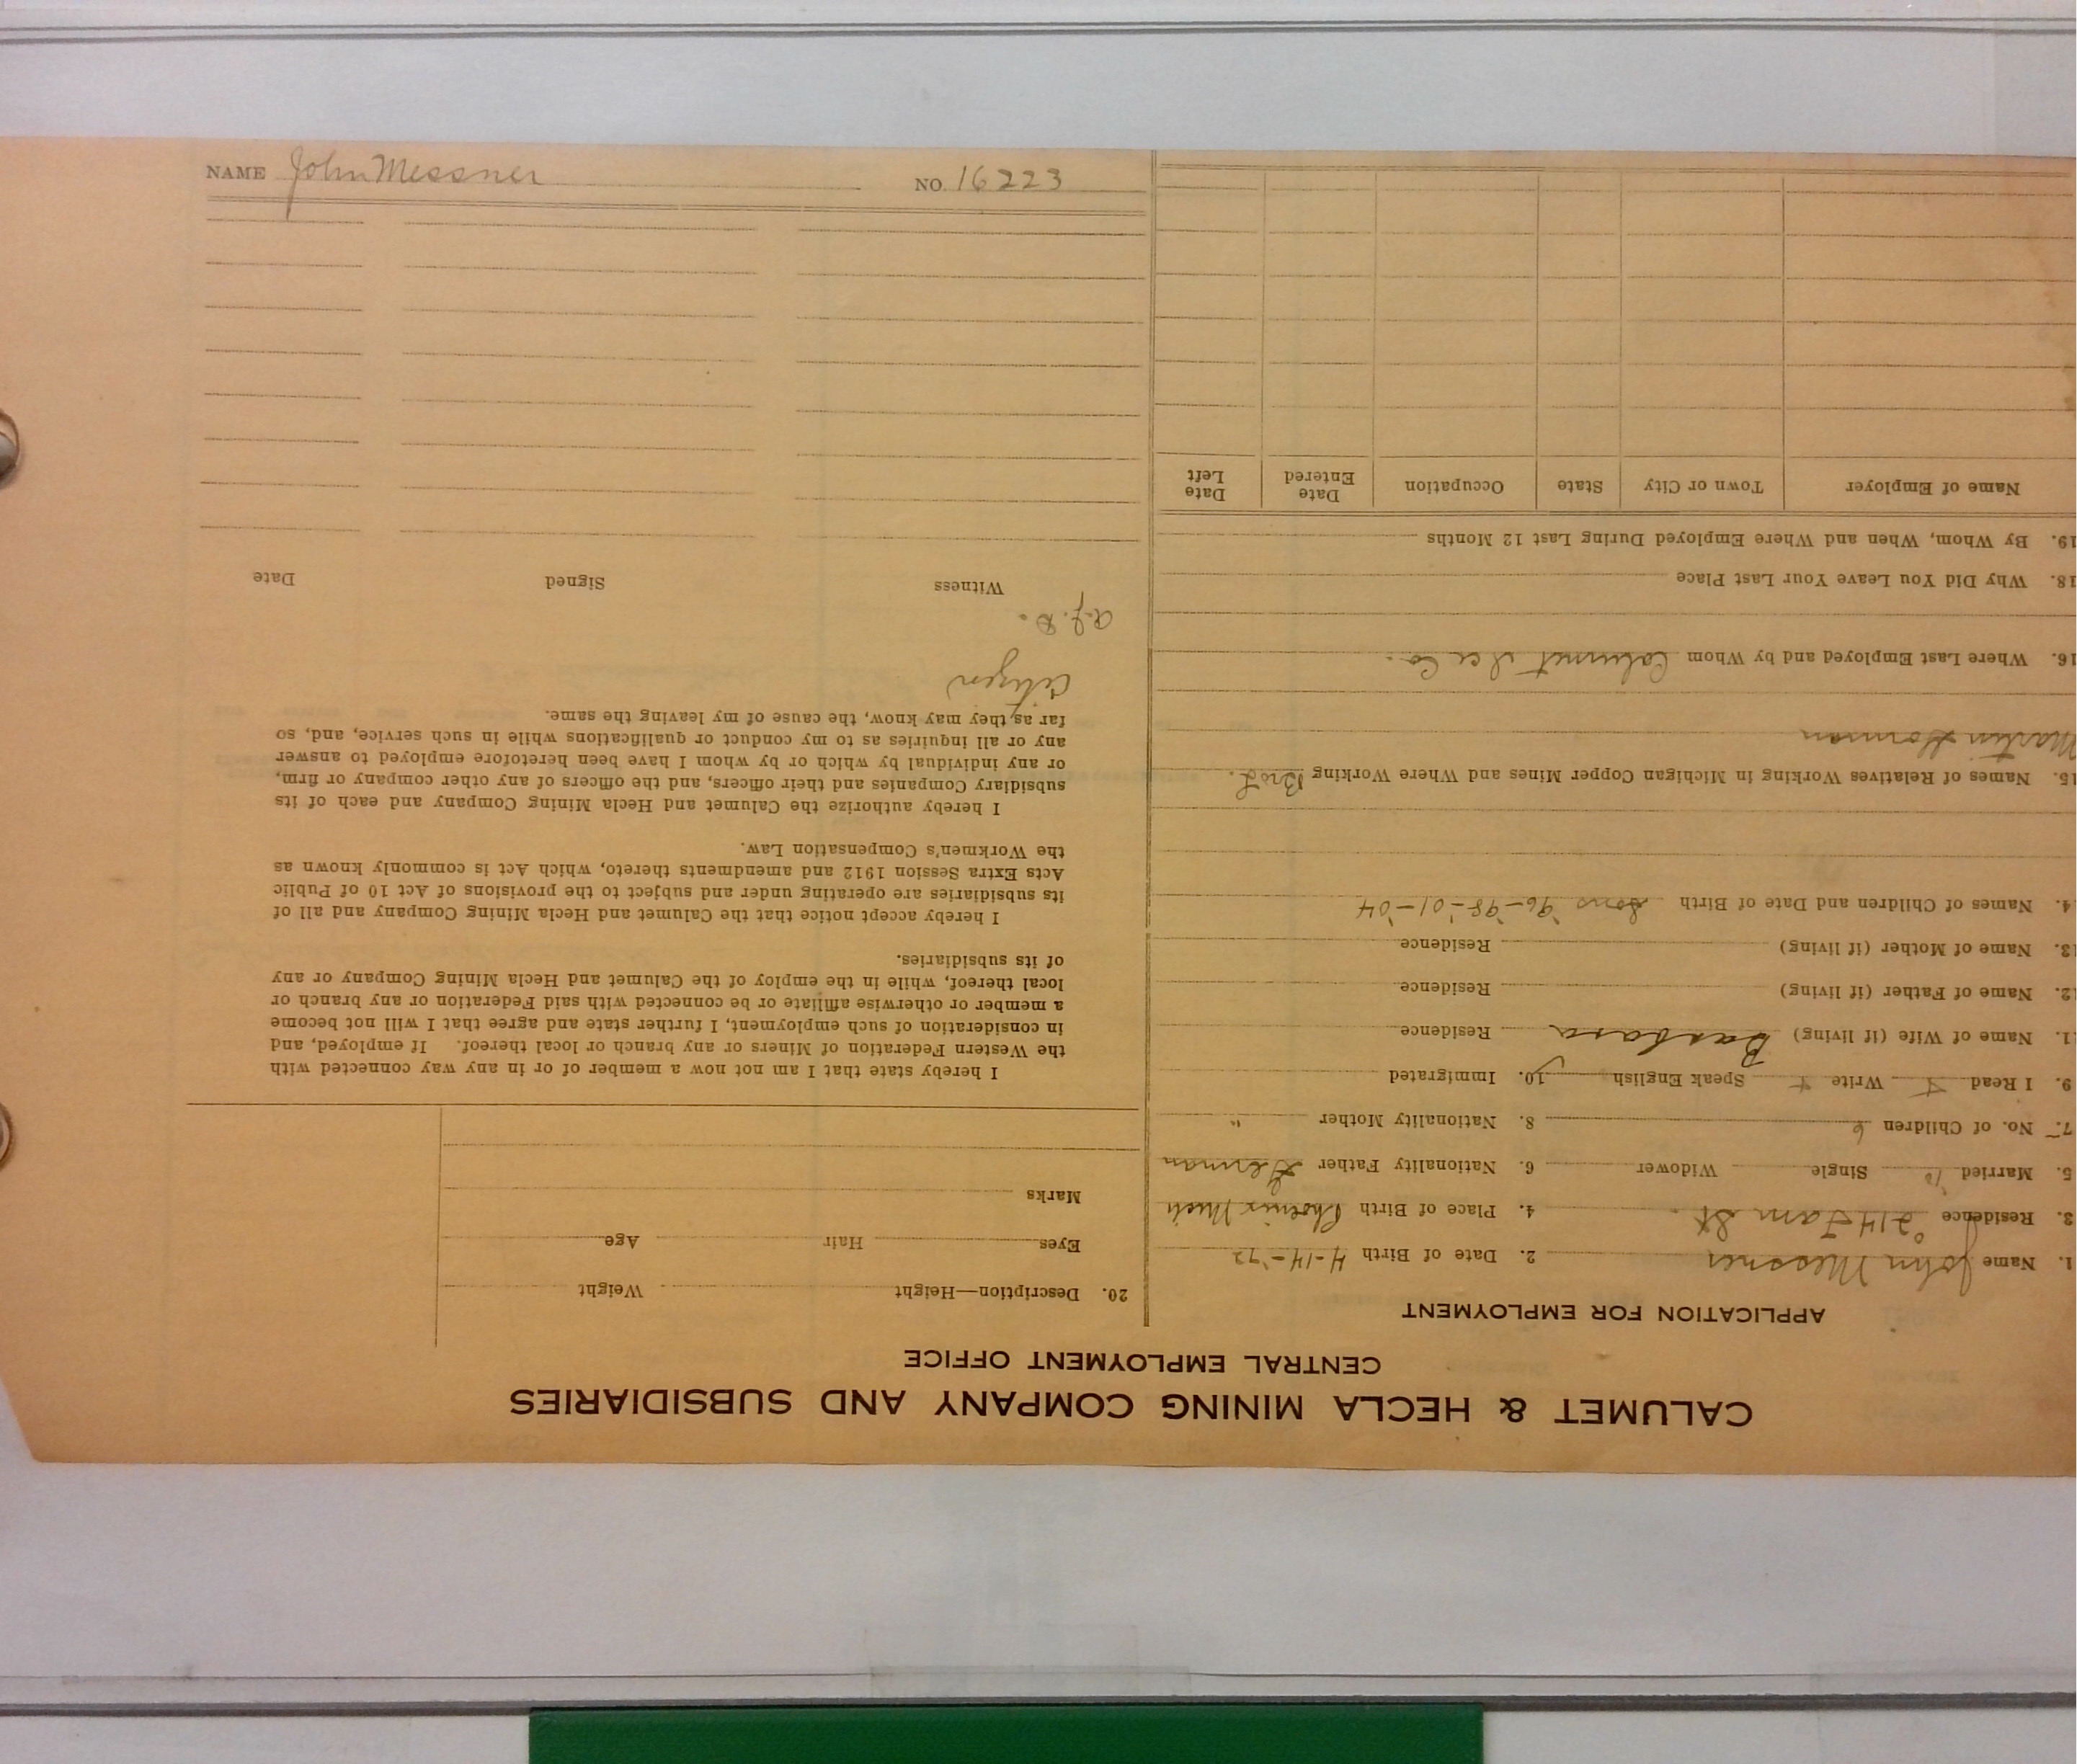 CALUMET & HECLA MINING COMPANY AND SUBSIDIARIES
CENTRAL EMPLOYMENT OFFICE
APPLICATION FOR EMPLOYMENT
1. Name John Messner 2. Date of Birth 4-14-'72
3. Residence 214 Tam St. 4. Place of Birth Phoenix Mich
5. Married Single Widower 6. Nationality Father German
7. No. of Children 6 8. Nationality Mother "
9. I Read Write Speak English 10. Immigrated
11. Name of Wife (if living) Barbara Residence
12. Name of Father (if living) Residence
13. Name of Mother (if living) Residence
4. Names of Children and Date of Birth Sons '96-'98-'01-'04
15. Names of Relatives Working in Michigan Copper Mines and Where Working Bro L.
Martin
16. Where Last Employed and by Whom Calumet Ice Co.
18. Why Did You Leave Your Last Place
19. By Whom, When and Where Employed During Last 12 Months
Name of Employer Town or City State Occupation Date Entered Date Left
20. Description—Height Weight
Eyes Hair Age
Marks
I hereby state that I am not now a member of or in any way connected with
the Western Federation of Miners or any branch or local thereof. If employed, and
in consideration of such employment, I further state and agree that I will not become
a member or otherwise affiliate or be connected with said Federation or any branch or
local thereof, while in the employ of the Calumet and Hecla Mining Company or any
of its subsidiaries.
I hereby accept notice that the Calumet and Hecla Mining Company and all of
its subsidiaries are operating under and subject to the provisions of Act 10 of Public
Acts Extra Session 1912 and amendments thereto, which Act is commonly known as
the Workmen's Compensation Law.
I hereby authorize the Calumet and Hecla Mining Company and each of its
subsidiary Companies and their officers, and the officers of any other company or firm,
or any individual by which or by whom I have been heretofore employed to answer
any or all inquiries as to my conduct or qualifications while in such service, and, so
far as they may know, the cause of my leaving the same.
Citizen
Witness Signed Date
NAME John Messner NO. 16223